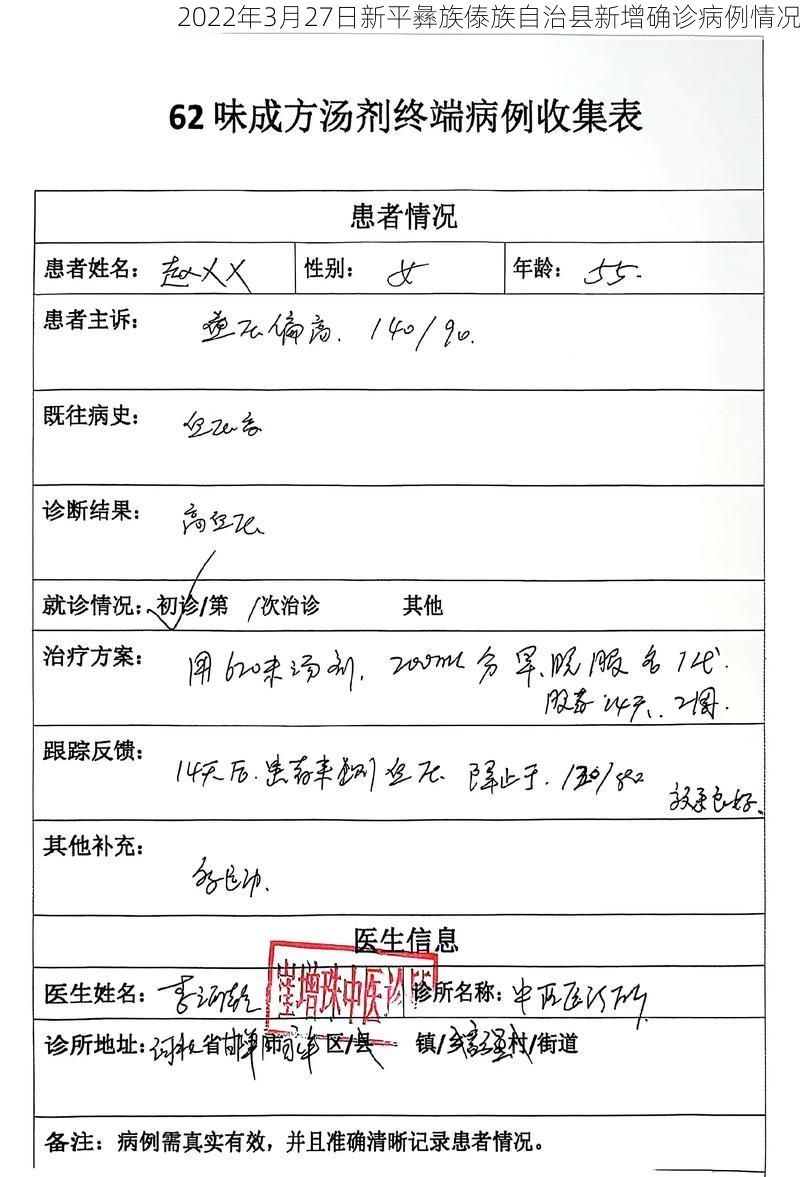 2022年3月27日新平彝族傣族自治县新增确诊病例情况
62味成方汤剂终端病例收集表
患者情况
患者姓名：赵XX 性别：女 年龄：55.
患者主诉：血压偏高. 140/90.
既往病史：血压高
诊断结果：高血压
就诊情况：初诊/第 /次治诊 其他
治疗方案：用620味汤剂, 200ml 分早、晚服各1代.
服药14天、2周.
跟踪反馈：14天后. 患者来 血压 降止于.
效果良好、
其他补充：
医生信息
医生姓名：李 诊所名称：中医医诊所
崔增珠中医诊所
诊所地址：河北省邯郸市 区/县 镇/乡 村/街道
备注：病例需真实有效，并且准确清晰记录患者情况。